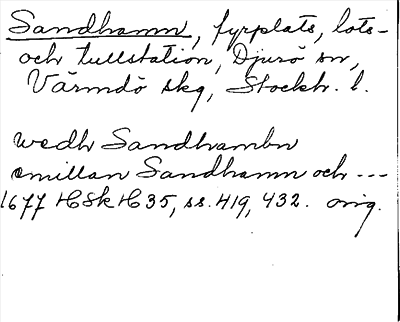 Sandhamn, fyrplats, lots-
och tullstation, Djurö sn,
Värmdö skg, Stockh. l.
wedh Sandhambn
emillan Sandhamn och ---
1677 HSk H35, ss. 419, 432. orig.